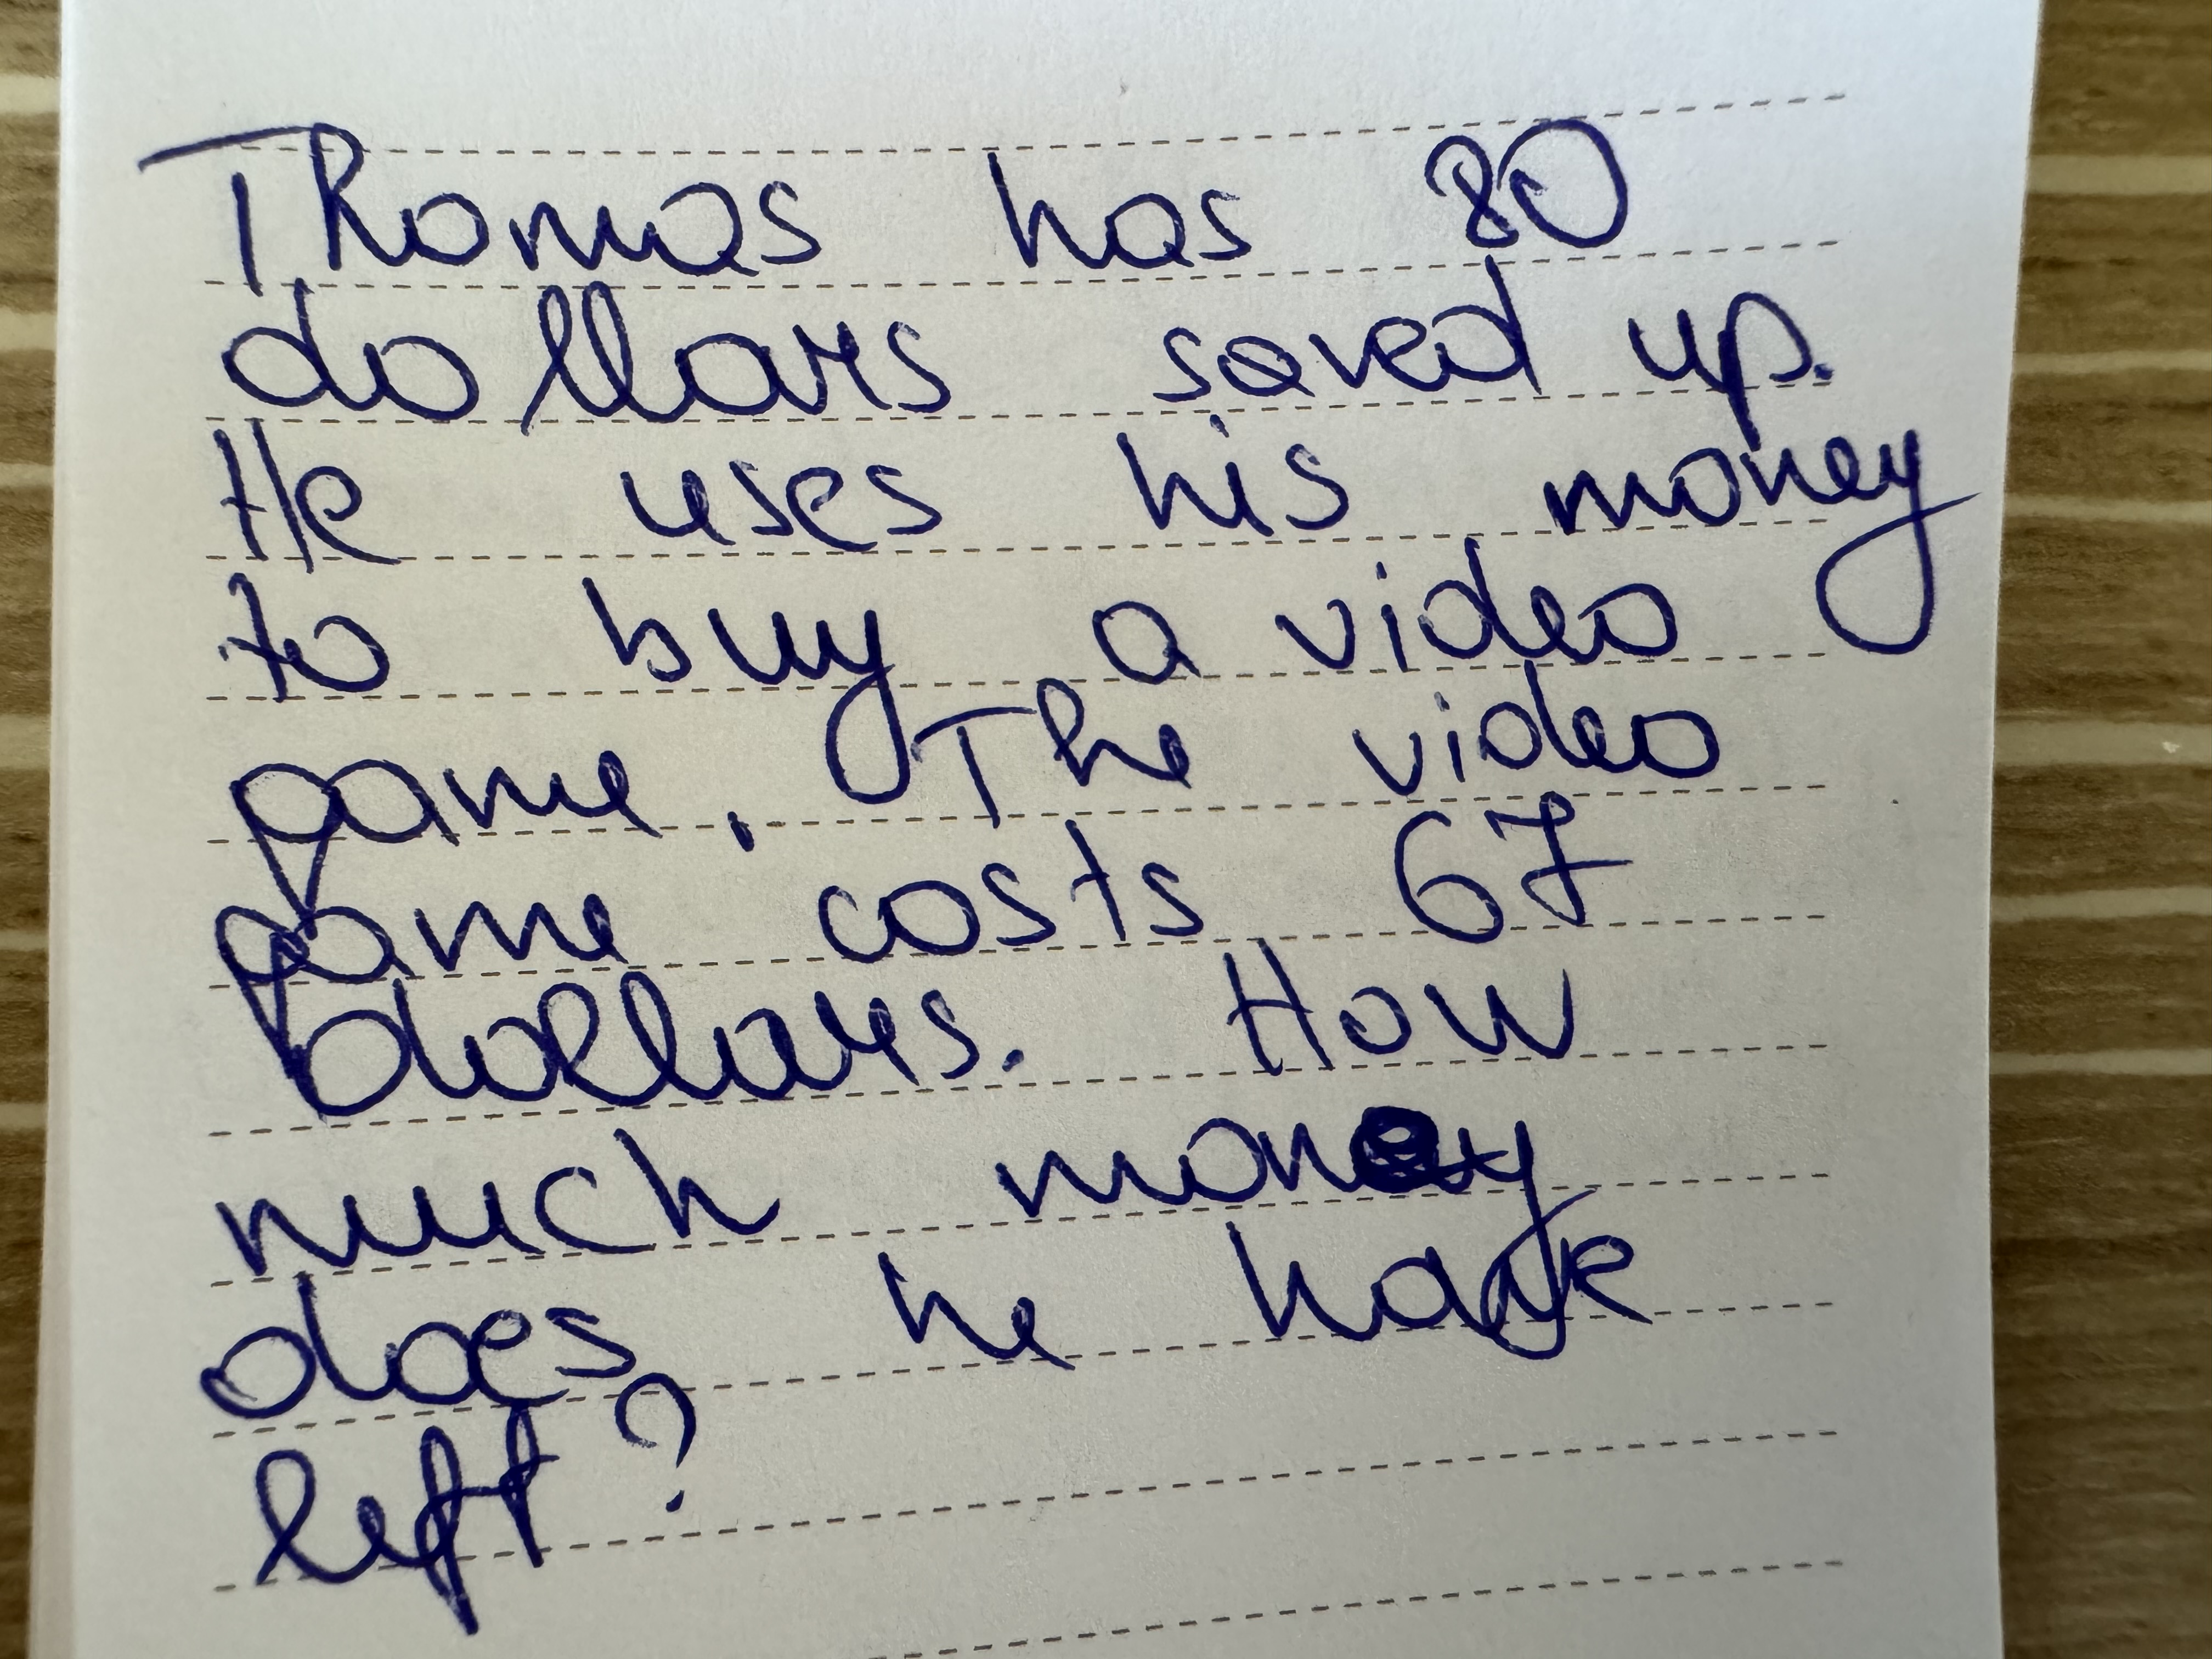 Thomas has 80
dollars saved up.
He uses his money
to buy a video
game. The video
game costs 67
dollars. How
much money
does he have
left?